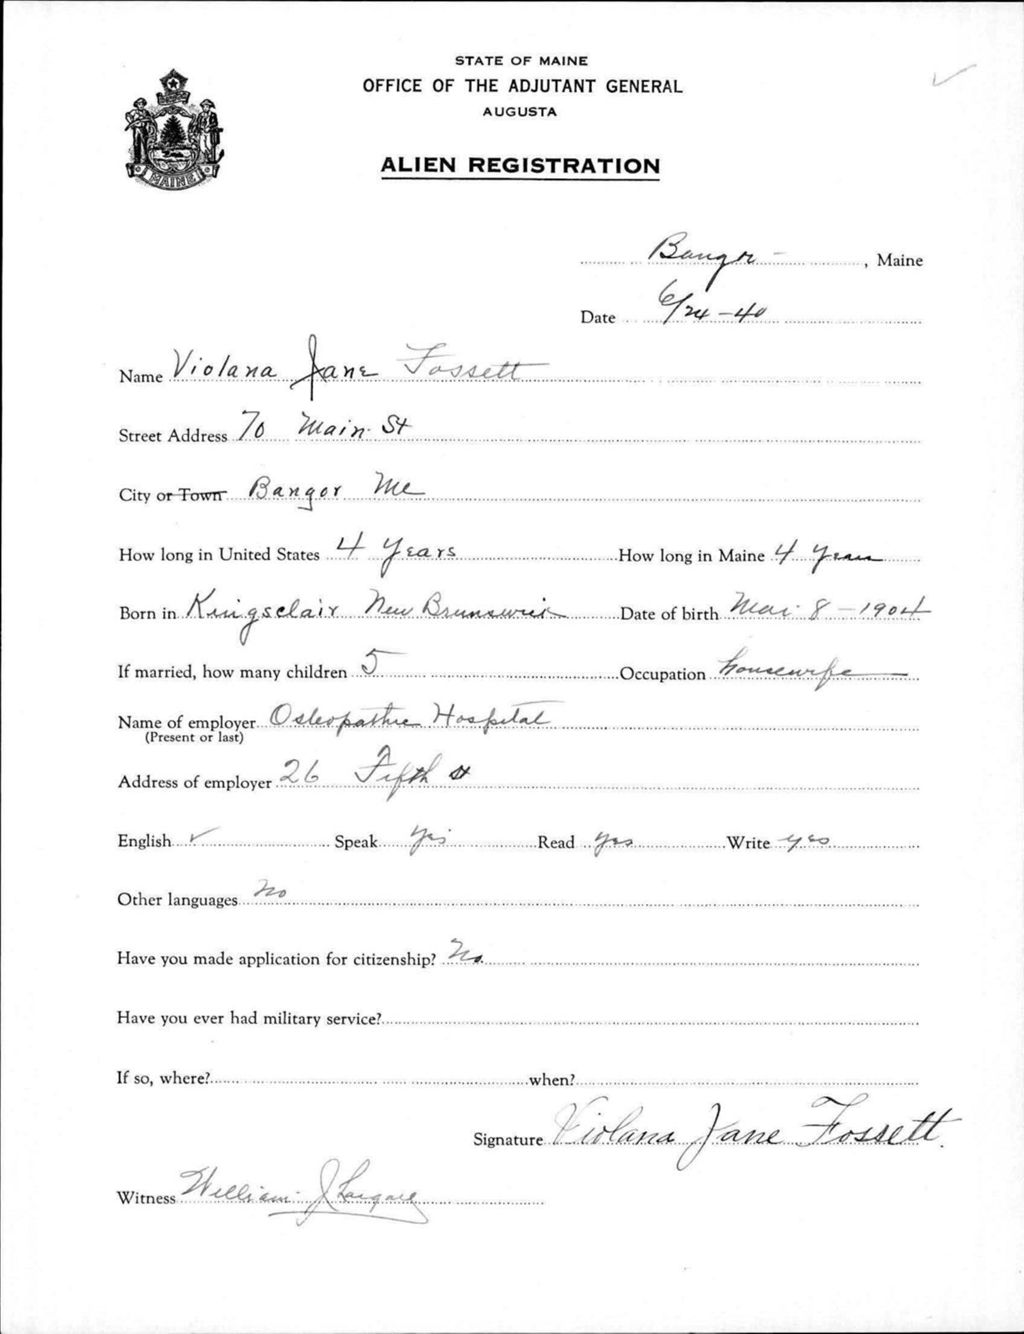 STATE OF MAINE
OFFICE OF THE ADJUTANT GENERAL
AUGUSTA
ALIEN REGISTRATION
MAINE
Bangor, Maine
Date 6/24-40
Name Violana Jane Fossett
Street Address 70 Main St
City or Town Bangor Me
How long in United States 4 Years How long in Maine 4 years
Born in Kingsclair New Brunswick Date of birth Mar. 8-1904
If married, how many children 5 Occupation housewife
Name of employer Osteopathic Hospital
(Present or last)
Address of employer 26 Fifth St
English ✓ Speak yes Read yes Write yes
Other languages no
Have you made application for citizenship? No.
Have you ever had military service?
If so, where? when?
Signature Violana Jane Fossett.
Witness William J